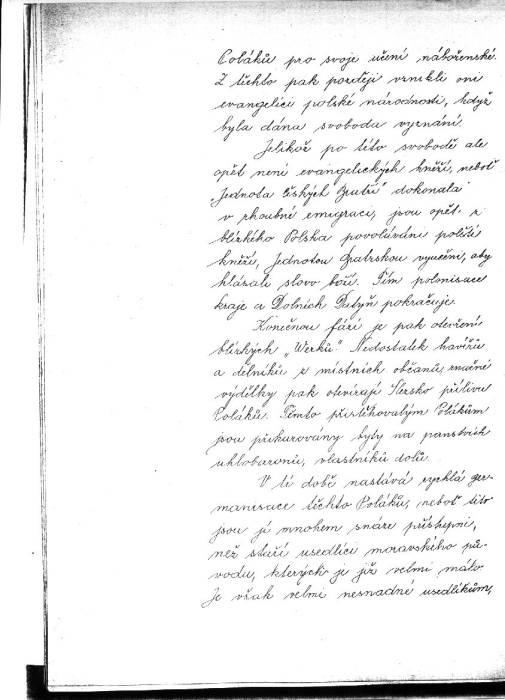 Poláků pro svoje učení náboženské.
Z těchto pak později vznikli oni
evangelíci polské národnosti, když
byla dána svoboda vyznání.
Jelikož po této svobodě ale
opět není evangelických kněží, neboť
"Jednota českých Bratří" dokonala
v zhoubné emigraci, jsou opět z
blízkého Polska povoláváni polští
kněží, Jednotou Bratrskou vyučení, aby
hlásali slovo boží. Tím polonisace
kraje a Dolních Datyň pokračuje.
Konečnou fází je pak otevření
blízkých „Werků". Nedostatek havířů
a dělníků z místních občanů, značné
výdělky pak otevírají Slezsko přílivu
Poláků. Těmto přistěhovalým Polákům
jsou přikazovány byty na panstvích
uhlobaronů, vlastníků dolů.
V té době nastává rychlá ger-
manisace těchto Poláků, neboť tito
jsou jí mnohem snáze přístupni,
než staří usedlíci moravského pů-
vodu, kterých je již velmi málo.
Je však velmi nesnadné usedlíkům,